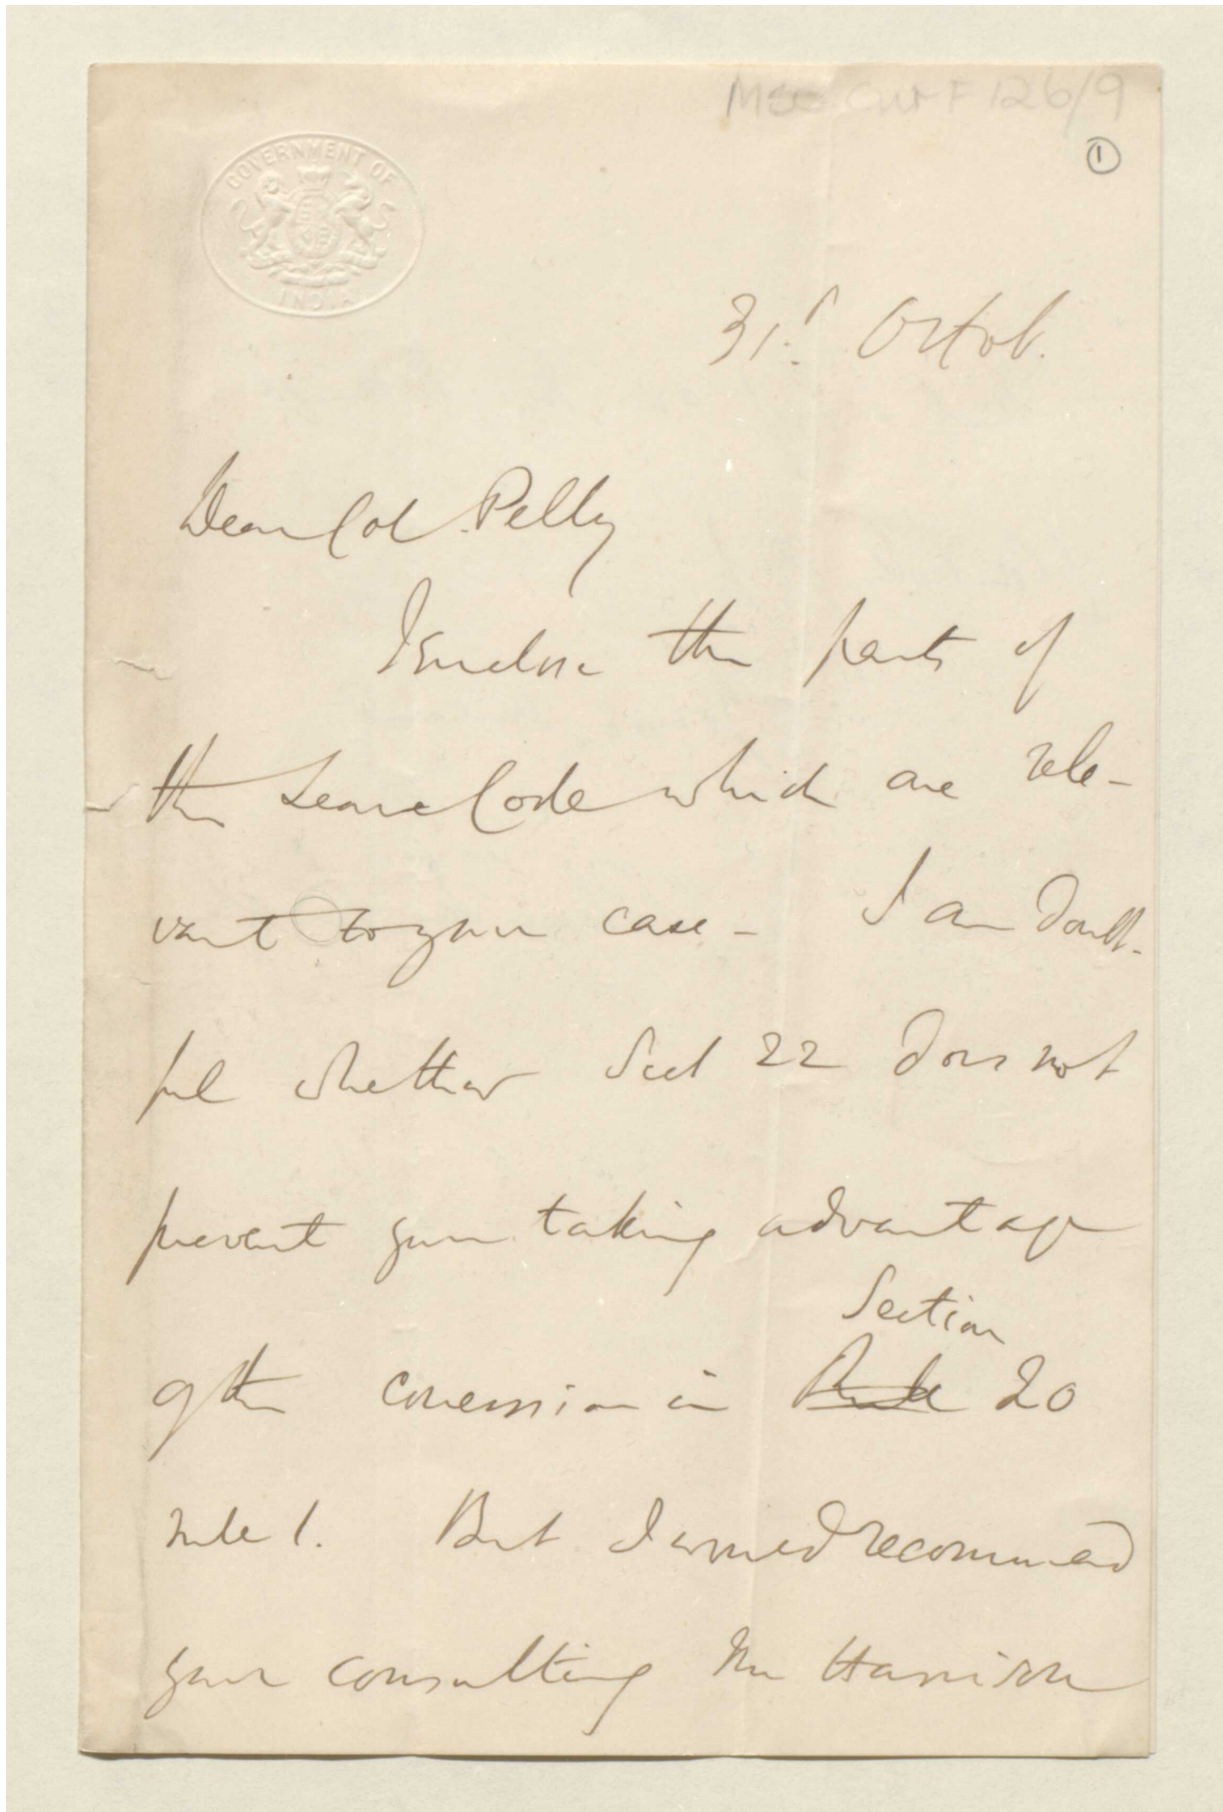 Mss Eur F 126/9
1
GOVERNMENT OF
INDIA
31st Octob.
Dear Col. Pelly
I enclose the parts of
the Leave Code which are rele-
vant to your case - I am doubt-
ful whether Sect 22 does not
prevent your taking advantage
Section
of the concession in Rule 20
rule 1. But I would recommend
your consulting Mr Harrison